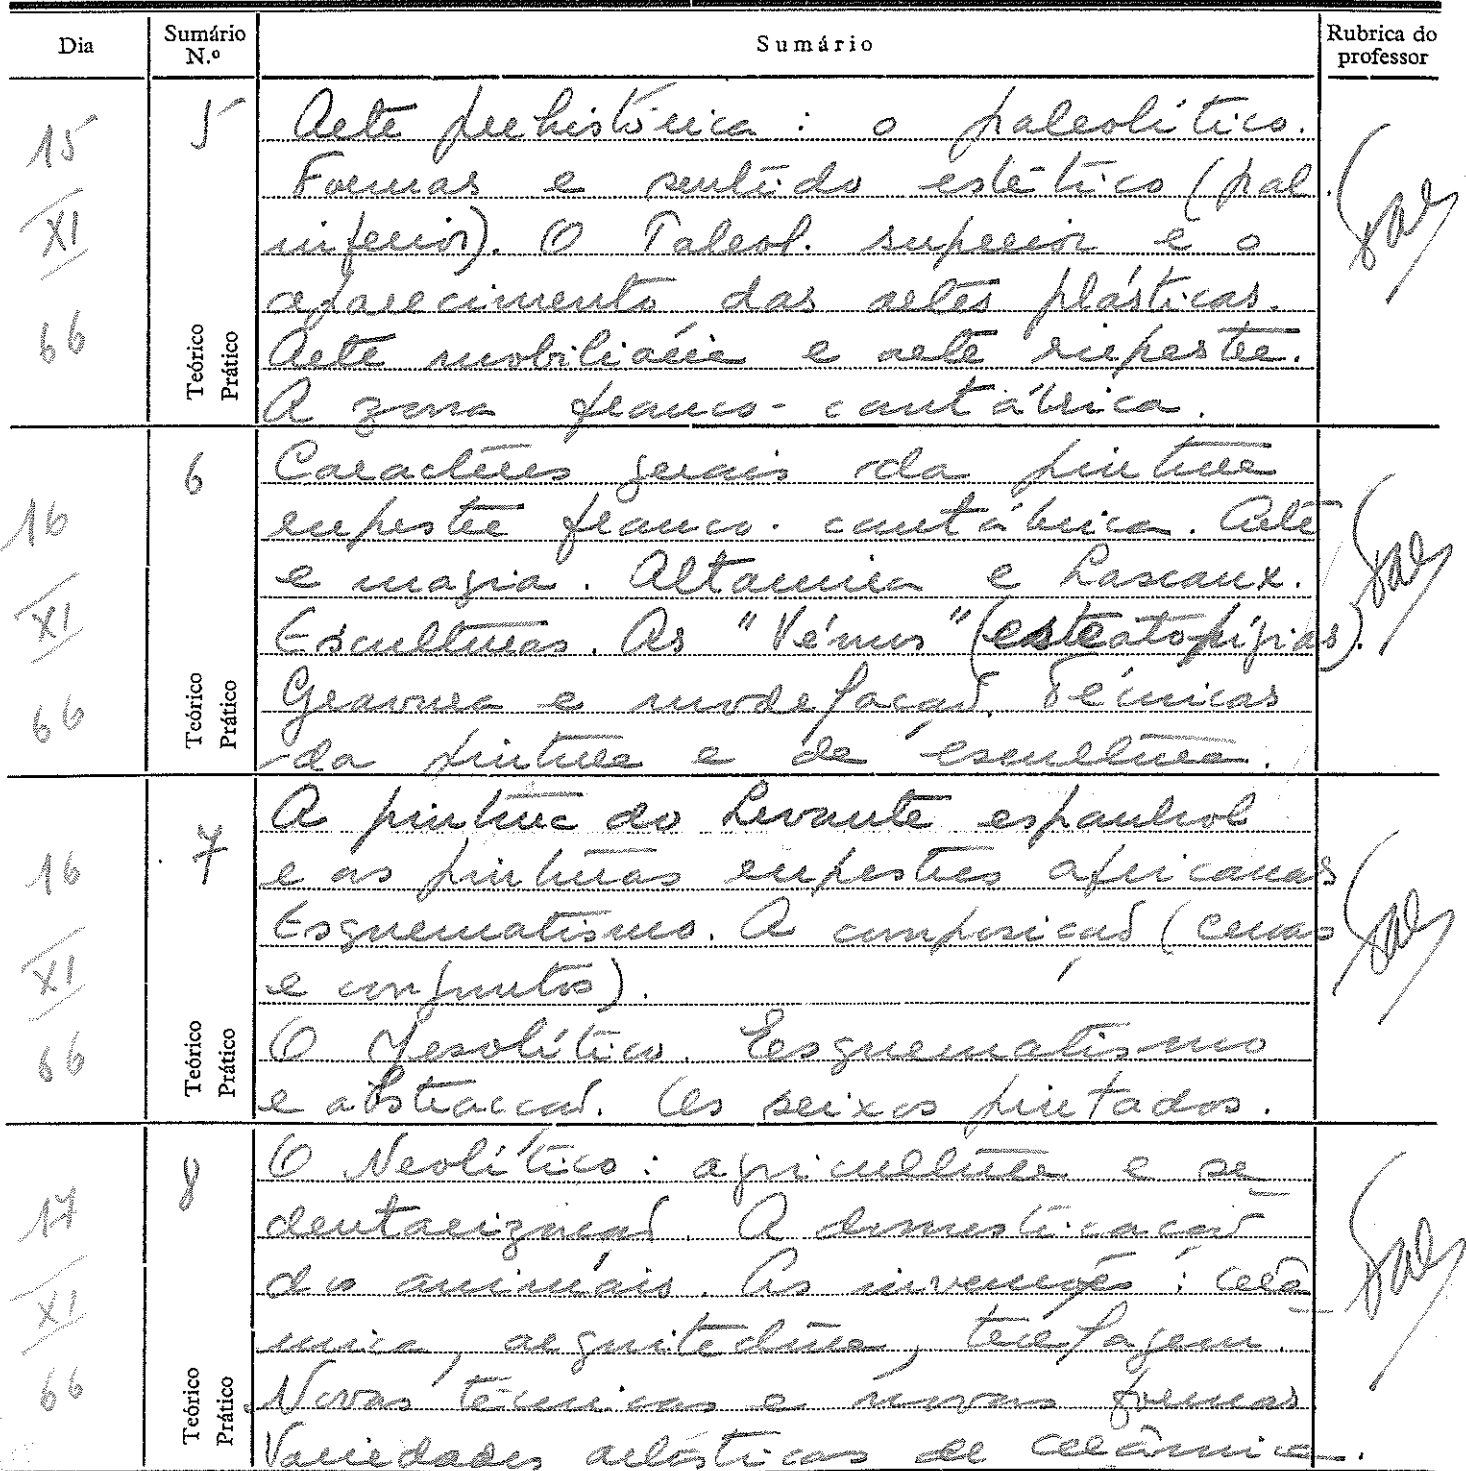 Dia
Sumário N.º
Sumário
Rubrica do professor
15 XI 66
5
Teórico
Prático
Arte prehistórica: o paleolítico.
Formas e sentido estético (pal.
inferior). O Paleol. superior e o
aparecimento das artes plásticas.
Arte mobiliária e arte rupestre.
A zona franco-cantábrica.
16 XI 66
6
Teórico
Prático
Caractéres gerais da pintura
rupestre franco-cantábrica. Arte
e magia. Altamira e Lascaux.
Esculturas. As "Vénus" (esteatopígias).
Gravura e modelação. Técnicas
da pintura e da escultura.
16 XI 66
7
Teórico
Prático
A pintura do Levante espanhol
e as pinturas rupestres africanas
Esquematismo. A composição (cenas
e conjuntos).
O Mesolítico. Esquematismo
e abstracção. Os seixos pintados.
17 XI 66
8
Teórico
Prático
O Neolítico: agricultura e se
dentarização. A domesticação
dos animais. As invenções: cerâ
mica, arquitectura, tecelagem.
Novas técnicas e novas formas
Variedades artísticas de cerâmica.